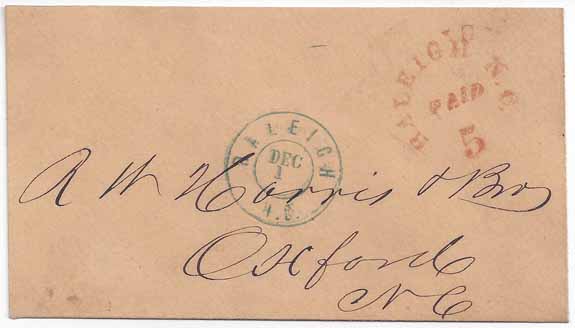 RALEIGH N.C.
PAID
5
RALEIGH
DEC
1
N.C.
A W Harris & Bro
Oxford
NC